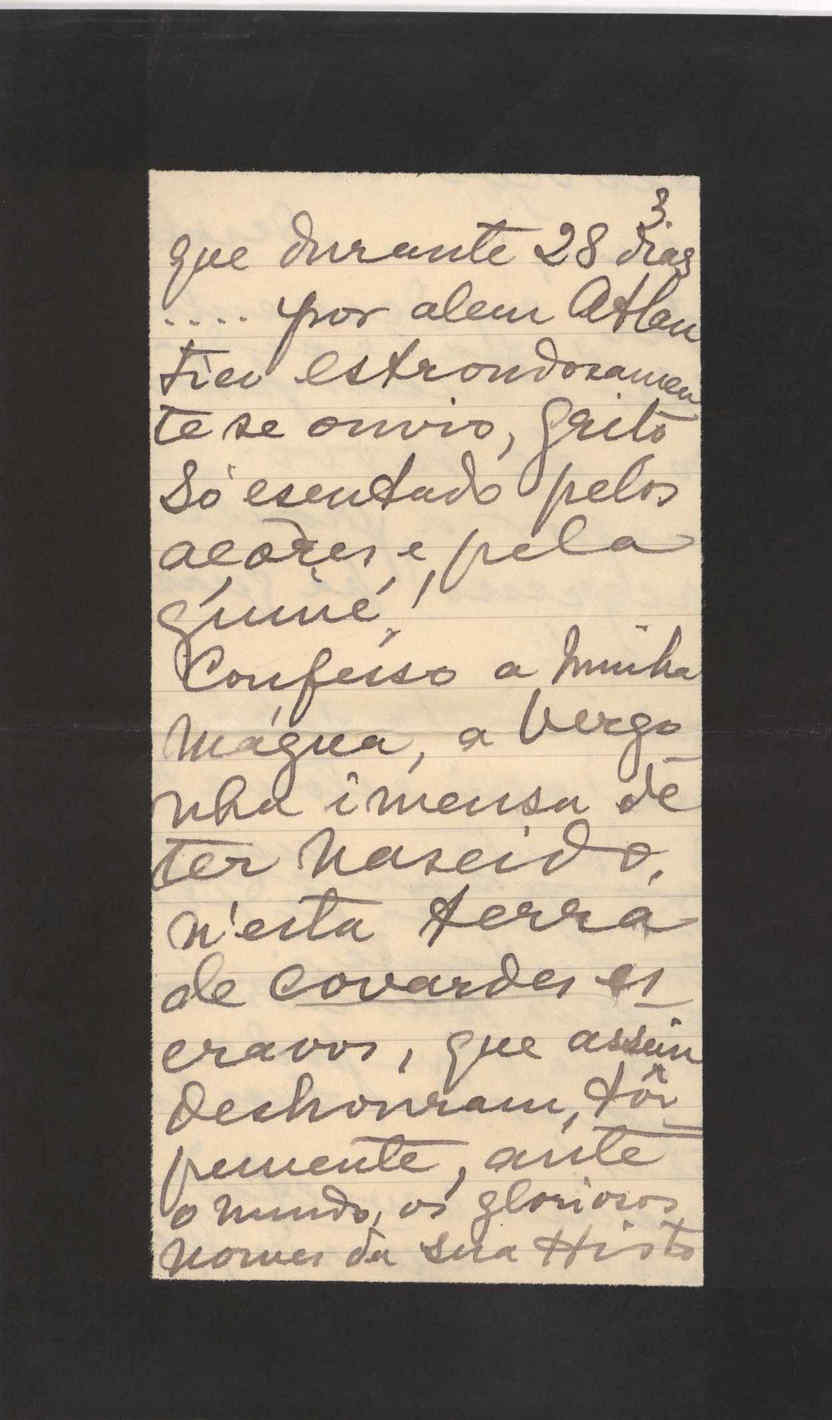 3
que durante 28 dias
.... por alem Atlan
tico estrondosamen
te se ouvio, grito
só escutado pelos
açôres e, pela
guiné!
Confésso a minha
mágua, a vergo
nha imensa de
ter nascido,
n'esta terra
de covardes es
cravos, que assim
deshonram, tôr
pemente, ante
o mundo, os gloriosos
nomes da sua Histo